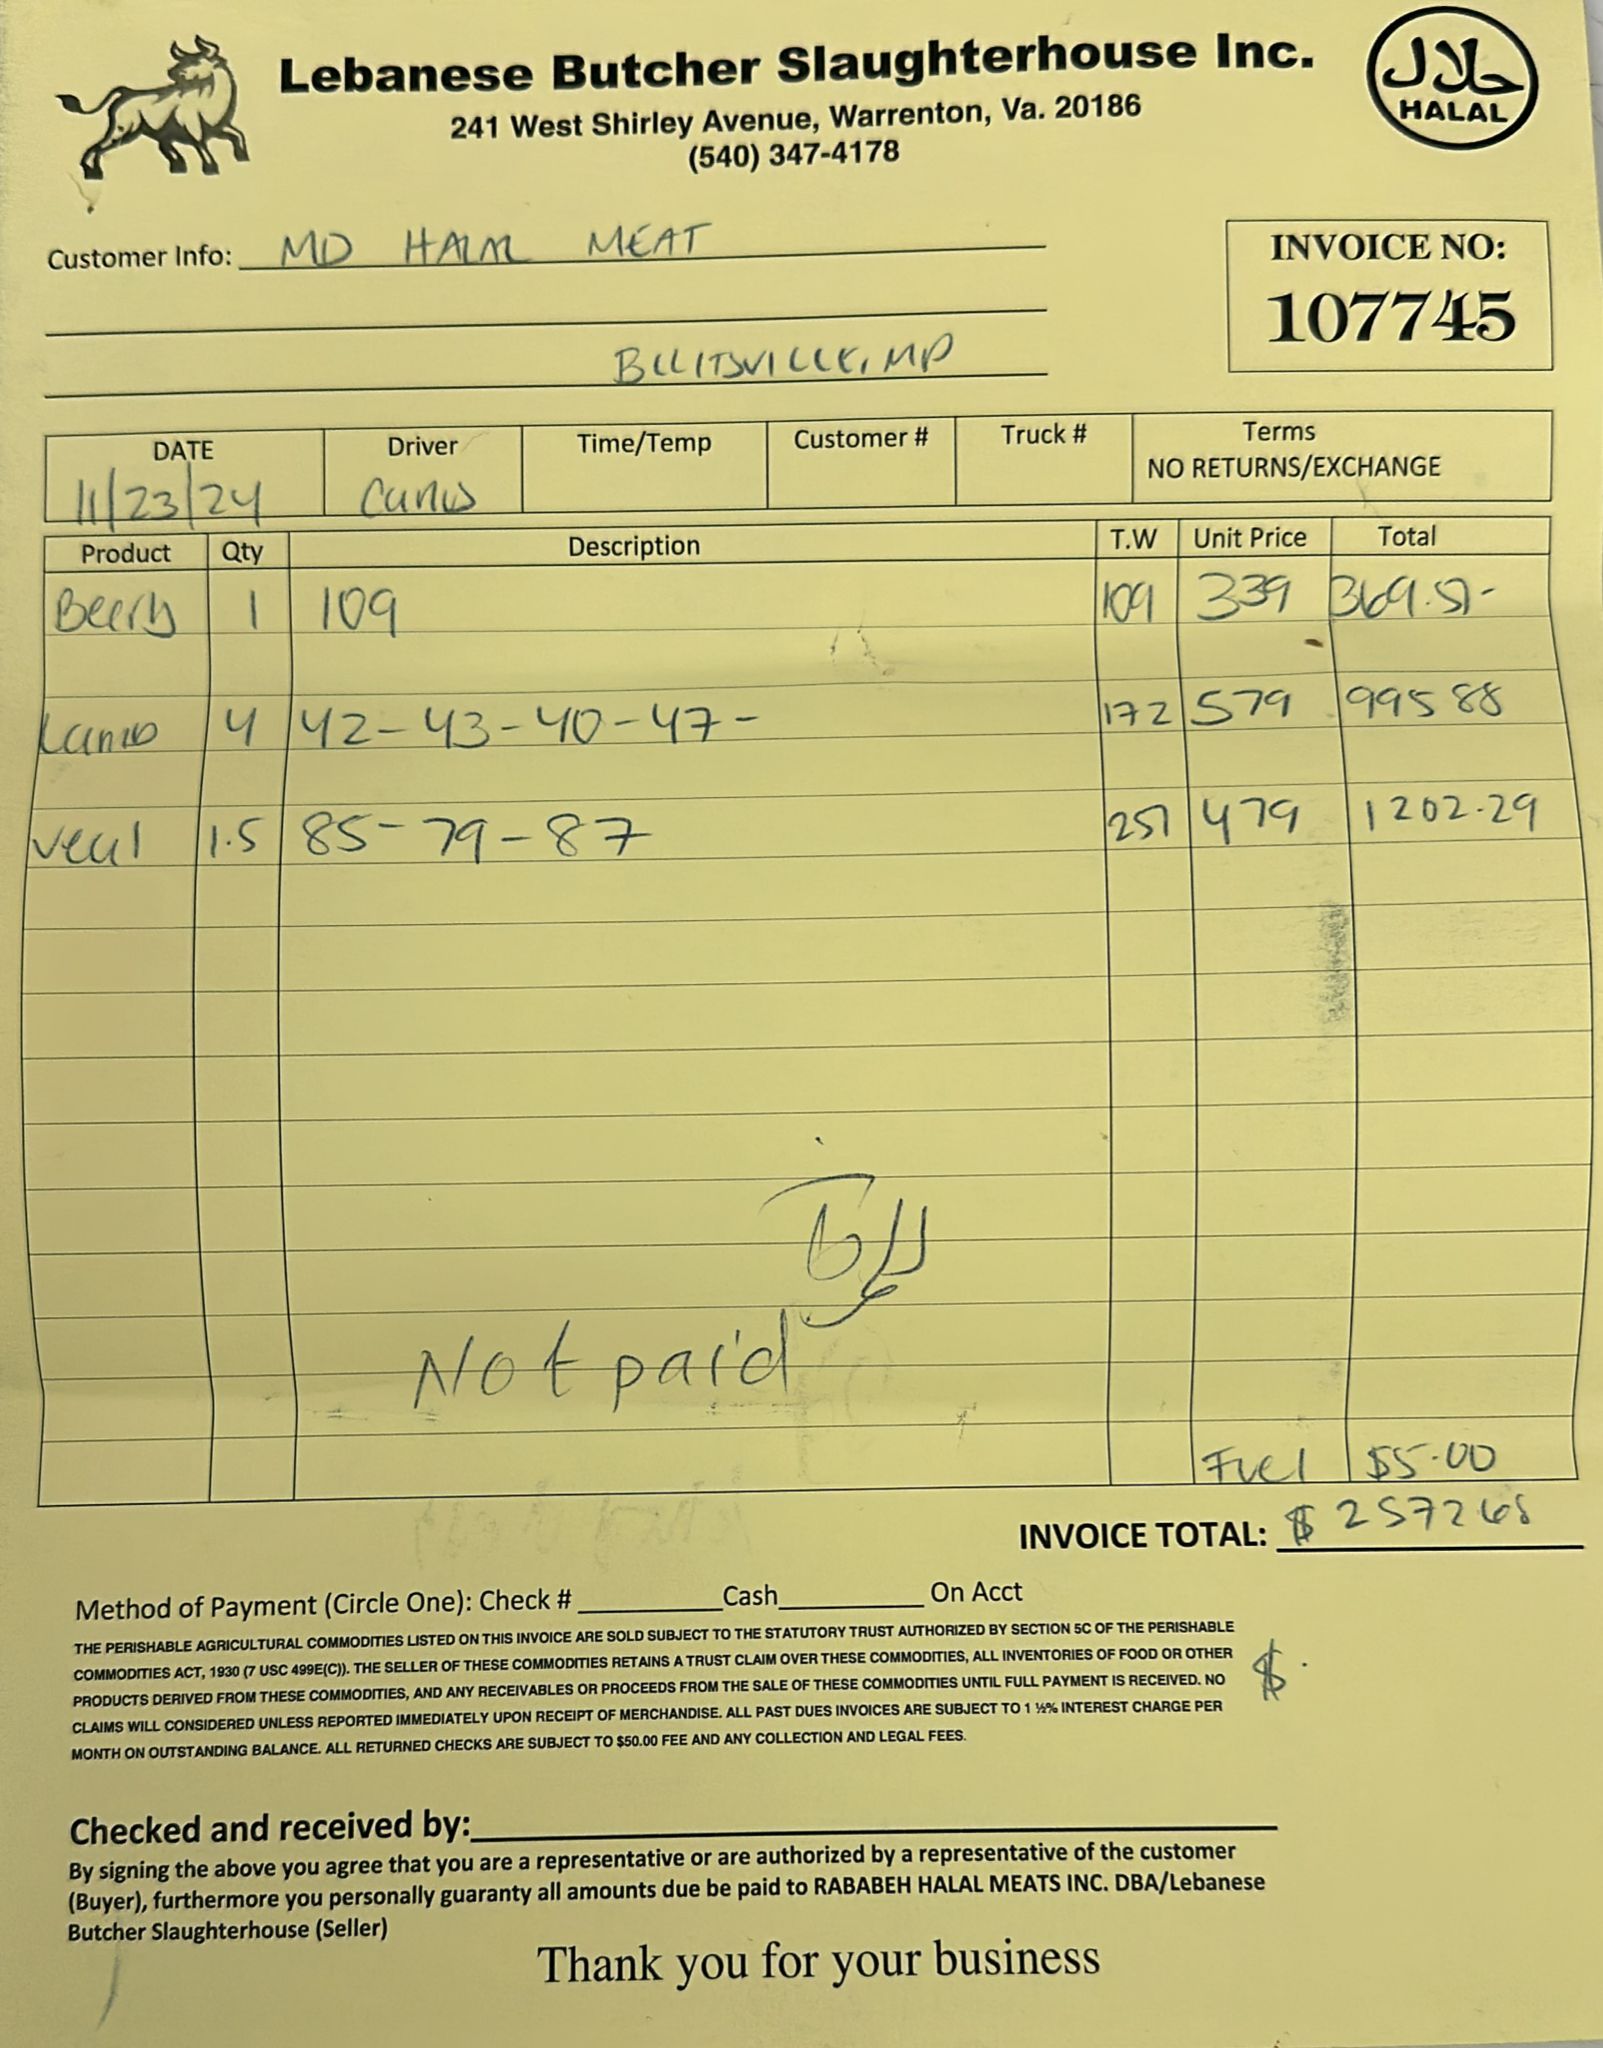 Lebanese Butcher Slaughterhouse Inc.
241 West Shirley Avenue, Warrenton, Va. 20186
(540) 347-4178
حلال
HALAL
Customer Info: MD HALAL MEAT
INVOICE NO:
107745
MD
DATE Driver Time/Temp Customer # Truck # Terms
NO RETURNS/EXCHANGE
11/23/24
Product Qty Description T.W Unit Price Total
1 109 109 339 369.51-
4 42-43-40-47- 172 579 995 88
veal 1.5 85-79-87 251 479 1202.29
Not paid
Fuel $5.00
INVOICE TOTAL: $ 257268
Method of Payment (Circle One): Check # Cash On Acct
THE PERISHABLE AGRICULTURAL COMMODITIES LISTED ON THIS INVOICE ARE SOLD SUBJECT TO THE STATUTORY TRUST AUTHORIZED BY SECTION 5C OF THE PERISHABLE
COMMODITIES ACT, 1930 (7 USC 499E(C)). THE SELLER OF THESE COMMODITIES RETAINS A TRUST CLAIM OVER THESE COMMODITIES, ALL INVENTORIES OF FOOD OR OTHER
PRODUCTS DERIVED FROM THESE COMMODITIES, AND ANY RECEIVABLES OR PROCEEDS FROM THE SALE OF THESE COMMODITIES UNTIL FULL PAYMENT IS RECEIVED. NO
CLAIMS WILL CONSIDERED UNLESS REPORTED IMMEDIATELY UPON RECEIPT OF MERCHANDISE. ALL PAST DUES INVOICES ARE SUBJECT TO 1 ½% INTEREST CHARGE PER
MONTH ON OUTSTANDING BALANCE. ALL RETURNED CHECKS ARE SUBJECT TO $50.00 FEE AND ANY COLLECTION AND LEGAL FEES.
$
Checked and received by:
By signing the above you agree that you are a representative or are authorized by a representative of the customer
(Buyer), furthermore you personally guaranty all amounts due be paid to RABABEH HALAL MEATS INC. DBA/Lebanese
Butcher Slaughterhouse (Seller)
Thank you for your business